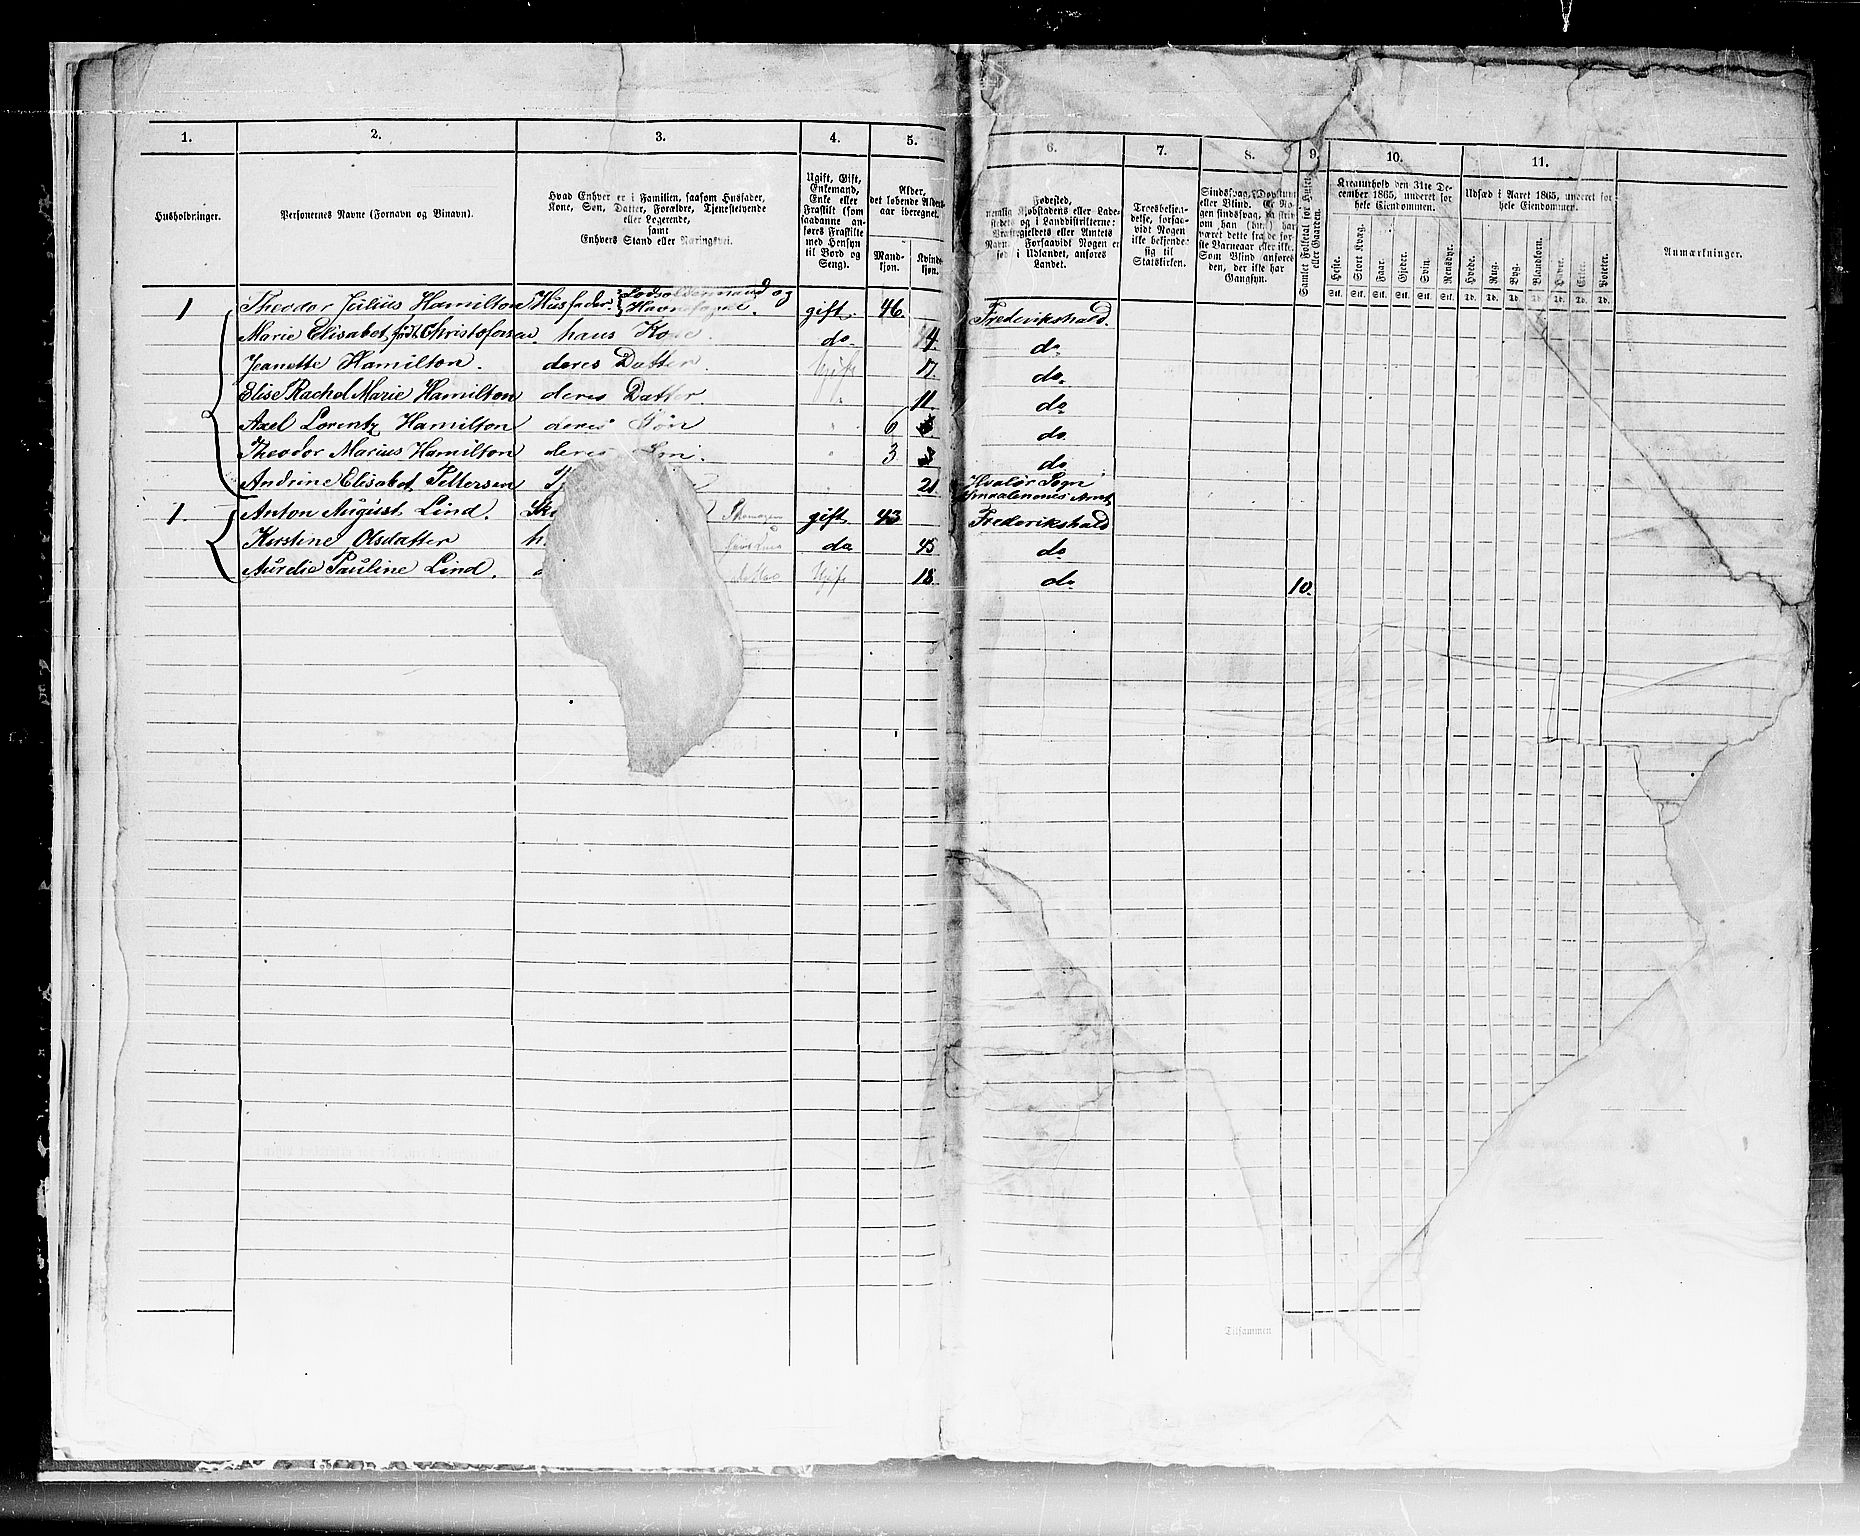 1. 2. 3. 4. 5. 6. 7. 8. 9. 10. 11.
Husholdninger.
Personernes Navne (Fornavn og Binavn).
Hvad Enhver er i Familien, saasom Husfader,
Kone, Søn, Datter, Forældre, Tjenestetyende
eller Logerende,
samt
Enhvers Stand eller Næringsvei.
Ugift, Gift,
Enkemand,
Enke eller
Fraskilt (som
saadanne an-
føres Fraskilte
med Hensyn
til Bord og
Seng).
Alder,
det løbende Alders-
aar iberegnet.
Mand-
kjøn.
Kvind-
kjøn.
Fødested,
nemlig Kjøbstadens eller Lade-
stedets og i Landdistrikterne:
Præstegjeldets eller Amtets
Navn. Forsaavidt Nogen er
fød i Udlandet, anføres
Landet.
Troesbekjen-
delse, forsaa-
vidt Nogen
ikke bekjende-
sig til
Statskirken.
Sindssvag, Døvstum
eller Blind. Er No-
gen sindssvag, da skriv
om han (hun) har
været dette fra de før-
ste Barneaar eller ikke.
Som Blind anføres
den, der ikke har
Gangsyn.
Samlet Folketal for Huset
eller Gaarden.
Kreaturhold den 31te De-
cember 1865, anført for
hele Eiendommen.
Heste. Stort Kvæg. Faar. Gjeder. Svin. Rensdyr.
Stk. Stk. Stk. Stk. Stk. Stk.
Udsæd i Aaret 1865, anført for
hele Eiendommen.
Hvede. Rug. Byg. Blandkorn. Havre. Erter. Poteter.
Td. Td. Td. Td. Td. Td. Td.
Anmærkninger.
1 Theodor Julius Hamilton Husfader. Lodsoldermand og Havnefogue. gift. 46. Frederikshald.
Marie Elisabet født Christofersen hans Kone. do. 44. do.
Jeanette Hamilton. deres Datter. Ugift 17. do.
Elise Rachel Marie Hamilton deres Datter. " 11. do
Axel Lorentz Hamilton deres Søn " 6 do.
Theodor Marius Hamilton deres Søn. " 3 do
Andrine Elisabet Pettersen " 21 Hvalør Sogn Smaalenenes Amt
1. Anton August Lind. gift 43 Frederikshald
Kirstine Olsdatter do 45 do
Aurelia Pauline Lind. Ugift 18. do. 10.
Tilsammen